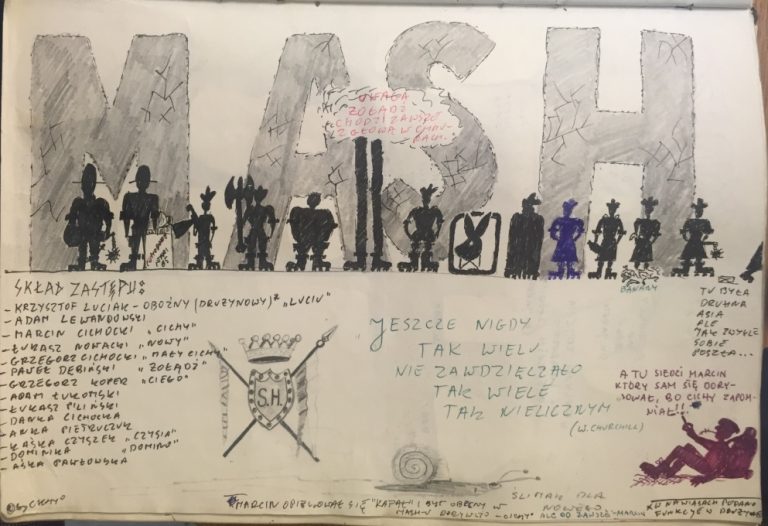 MASH
UWAGA
ŻOŁĄDŹ
CHODZI ZAWSZE
Z GŁOWĄ W CHMU-
RACH.
BANANY
SKŁAD ZASTĘPU:
- KRZYSZTOF LUCIAK - OBOŹNY (DRUŻYNOWY)² "LUCIU"
- ADAM LEWANDOWSKI
- MARCIN CICHOCKI "CICHY"
- ŁUKASZ NOWACKI "NOWY"
- GRZEGORZ CICHOCKI "MAŁY CICHY"
- PAWEŁ DĘBIŃSKI "ŻOŁĄDŹ"
- GRZEGORZ KOPER "CIEGO"
- ADAM ŁUKOMSKI
- ŁUKASZ PILIŃSKI
- DANKA CICHOCKA
- ANKA PIETRUCZUK
- KAŚKA CZYSZEK "CZYSIA"
- DOMINIKA "DOMINO"
- AŚKA PAWŁOWSKA
S.H.
JESZCZE NIGDY
TAK WIELU
NIE ZAWDZIĘCZAŁO
TAK WIELE
TAK NIELICZNYM
(W. CHURCHILL)
TU BYŁA
DRUHNA
ASIA
ALE
JAK ZWYKLE
SOBIE
POSZŁA...
A TU SIEDZI MARCIN
KTÓRY SAM SIĘ DORY-
SOWAŁ, BO CICHY ZAPOM-
NIAŁ!!
ŚLIMAK DLA
NOWEGO
© by CICHY
MARCIN OPIEKOWAŁ SIĘ "KADRĄ" I BYŁ OBECNY W
MASH-U - CICHY ALE OD ZAWSZE - MARCIN
W NAWIASACH PODANO
FUNKCJE W DRUŻYNIE